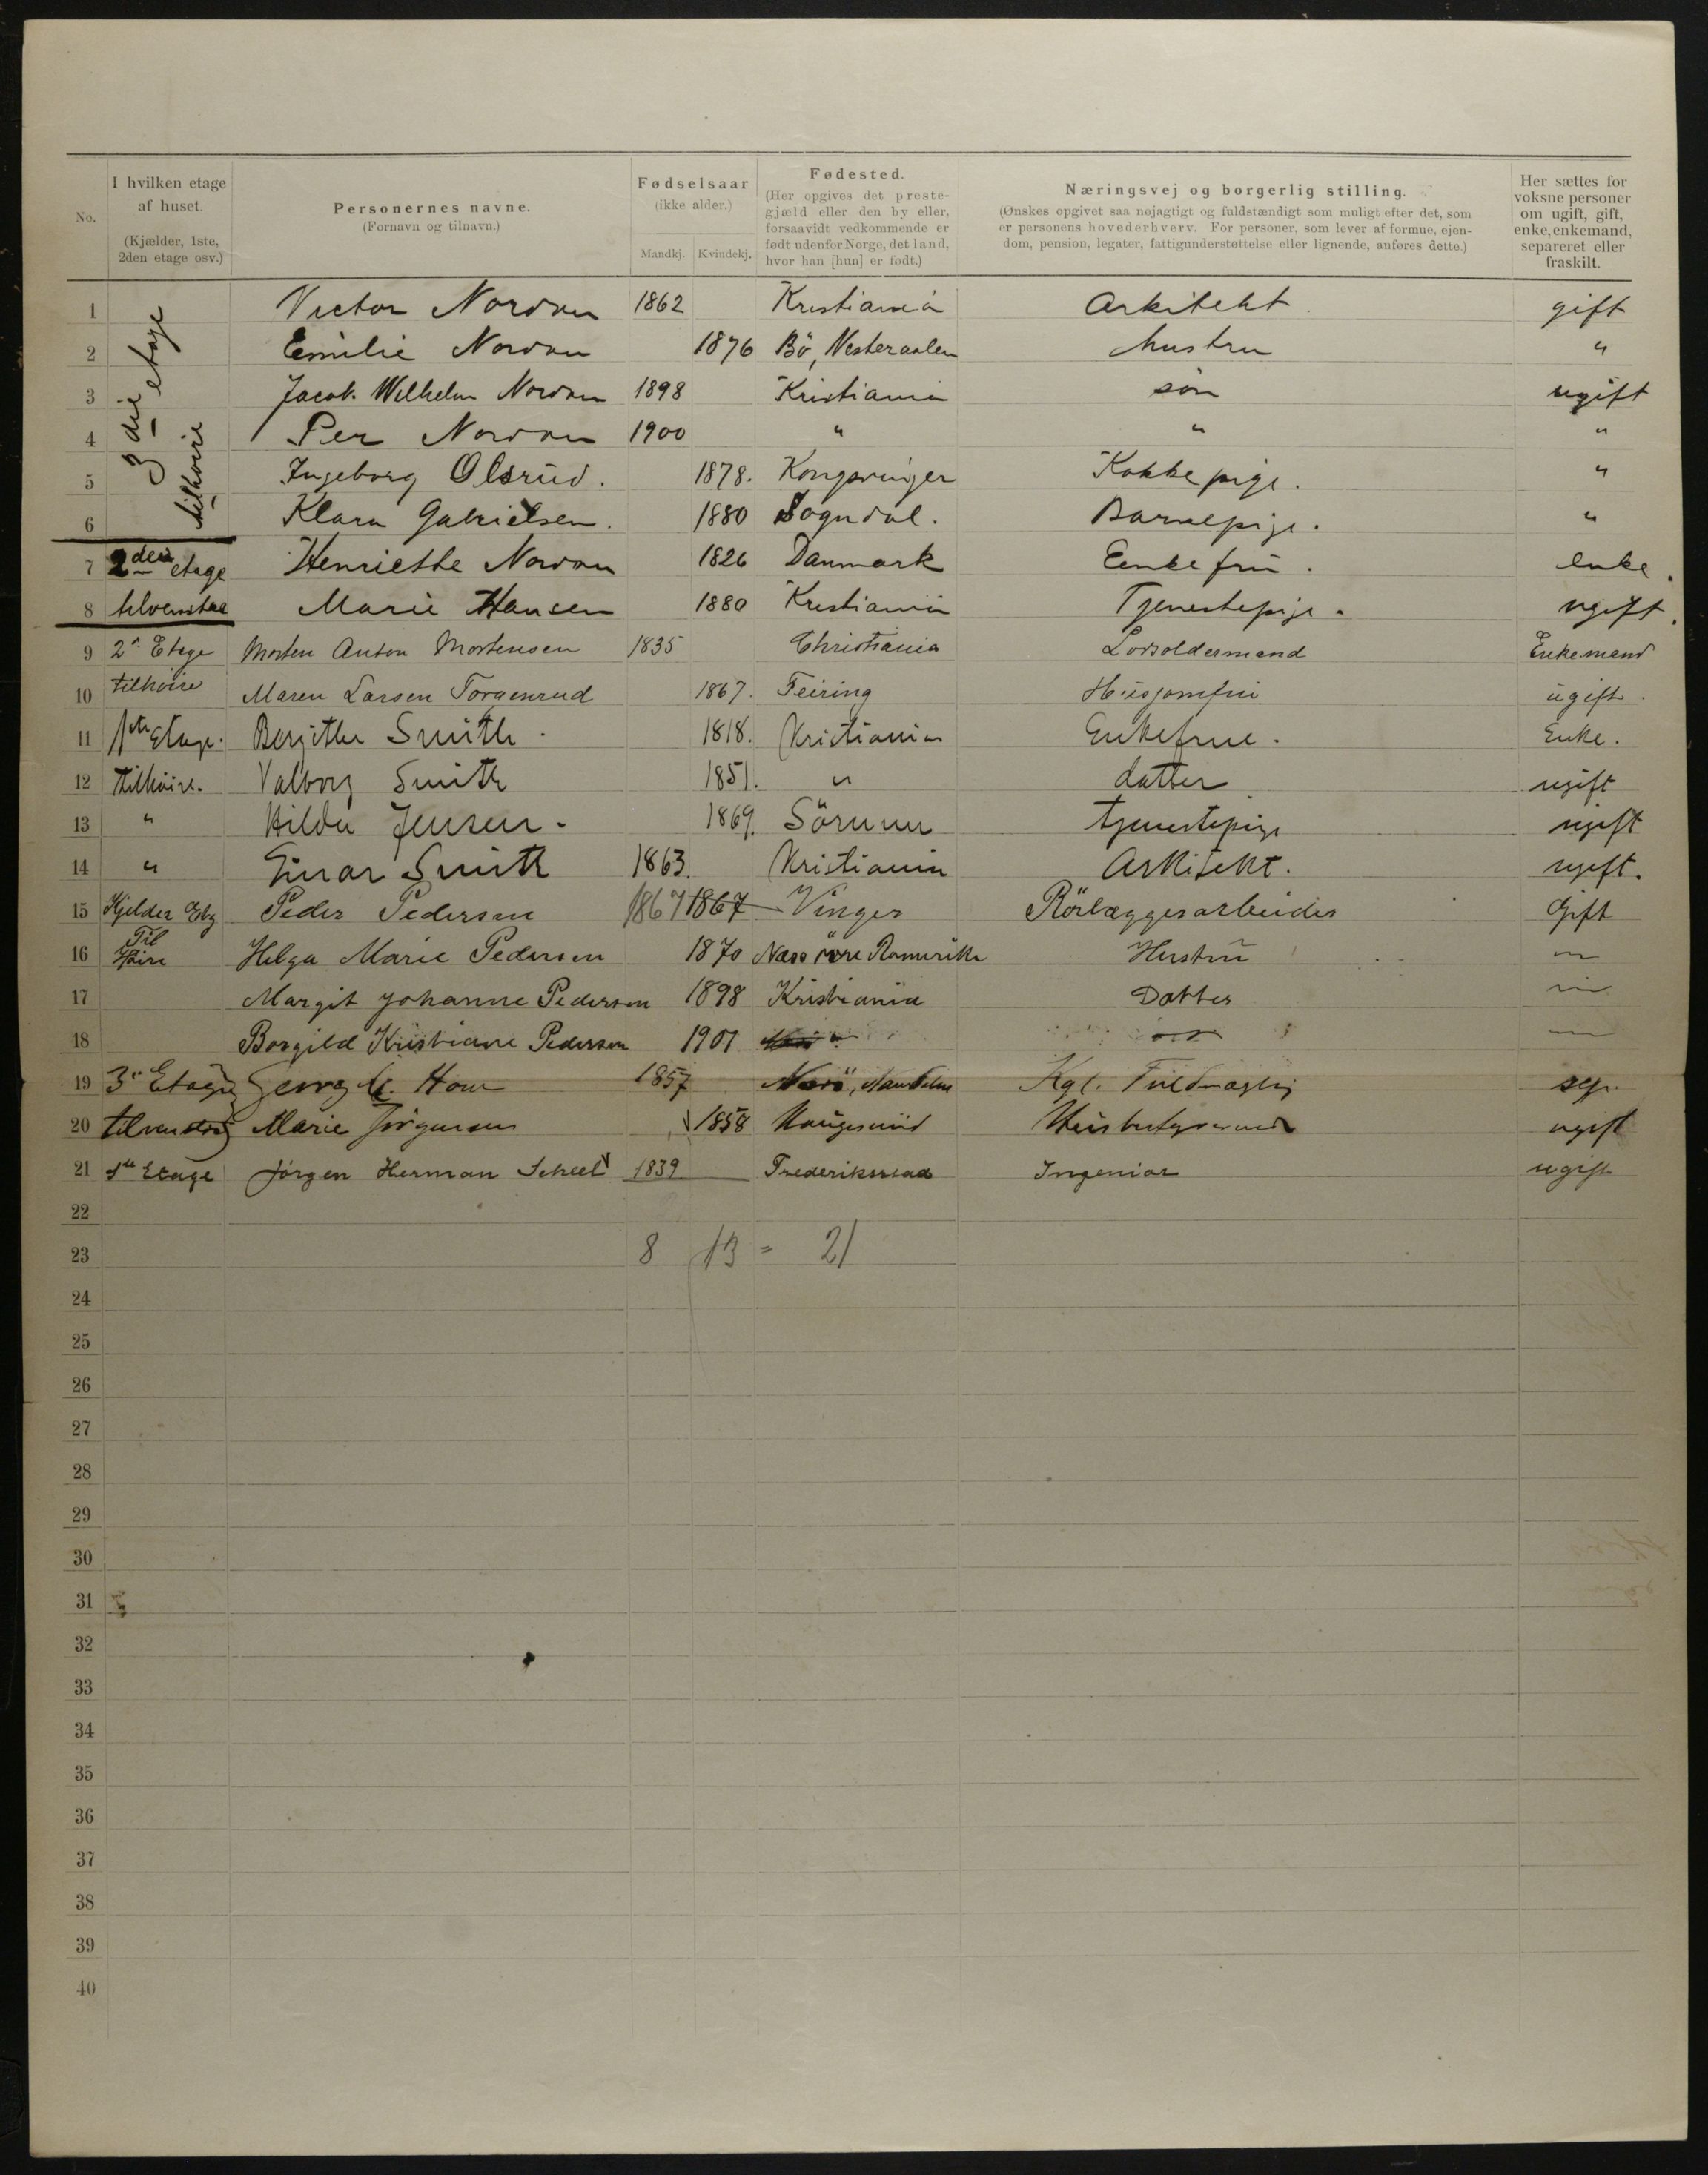 No.
I hvilken etage
af huset.
(Kjælder, 1ste,
2den etage osv.)
Personernes navne.
(Fornavn og tilnavn.)
Fødselsaar
(ikke alder.)
Mandkj. Kvindekj.
Fødested.
(Her opgives det preste-
gjæld eller den by eller,
forsaavidt vedkommende er
født udenfor Norge, det land,
hvor han [hun] er født.)
Næringsvej og borgerlig stilling.
(Ønskes opgivet saa nøjagtigt og fuldstændigt som muligt efter det, som
er personens hovederhverv. For personer, som lever af formue, ejen-
dom, pension, legater, fattigunderstøttelse eller lignende, anføres dette.)
Her sættes for
voksne personer
om ugift, gift,
enke, enkemand,
separeret eller
fraskilt.
3die etage
tilhøire
1 Victor Nordan 1862 Kristiania Arkitekt gift
2 Emilie Nordan 1876 Bö, Vesteraalen hustru "
3 Jacob Wilhelm Nordan 1898 Kristiania sön ugift
4 Per Nordan 1900 " " "
5 Ingeborg Olsrud. 1878. Kongsvinger Kokkepige. "
6 Klara Gabrielsen. 1880 Sogndal. Barnepige. "
7 2den etage Henriette Nordan 1826 Danmark Enkefru. enke.
8 tilvenstre Marie Hansen 1880 Kristiania Tjenestepige. ugift.
9 2n Etage Morten Anton Mortensen 1835 Christiania Lodsoldermand Enkemand
10 tilhöire Maren Larsen Torgenrud 1867. Feiring Husjomfru ugift.
11 1ste Etage. Bergitte Smith. 1818. Kristiania Enkefrue. Enke.
12 tilhöire. Valborg Smith 1851. " datter ugift
13 " Hilda Jensen. 1869. Sörum tjenestepige ugift
14 " Einar Smith 1863. Kristiania Arkitekt. ugift.
15 Kjelder Etg Peder Pedersen 1867 1867 Vinger Rörlæggerarbeider Gift
16 Til Höire Helga Marie Pedersen 1870 Næs övre Romerike Hustru "
17 Margit Johanne Pedersen 1898 Kristiania Datter "
18 Borgild Kristiane Pedersen 1901 " "
19 3n Etage Georg Hou 1857 Kgl. Fuldmægtig sep.
20 tilvenstre Marie Jörgensen 1858 Haugesund Husbestyrerinde ugift
21 1ste Etage Jörgen Herman Scheel 1839 Frederikstad Ingeniør ugift
22
23 8 13 = 21
24
25
26
27
28
29
30
31
32
33
34
35
36
37
38
39
40